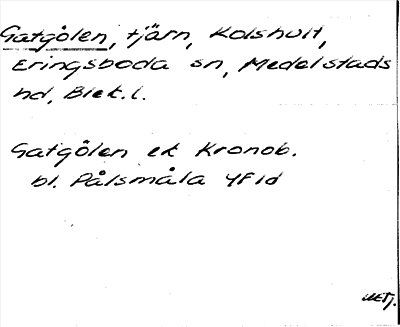 Gatgölen, tjärn, Kolshult,
Eringsboda sn, Medelstads
hd, Blek. l.
Gatgölen ek Kronob.
bl. Pålsmåla 4F1d